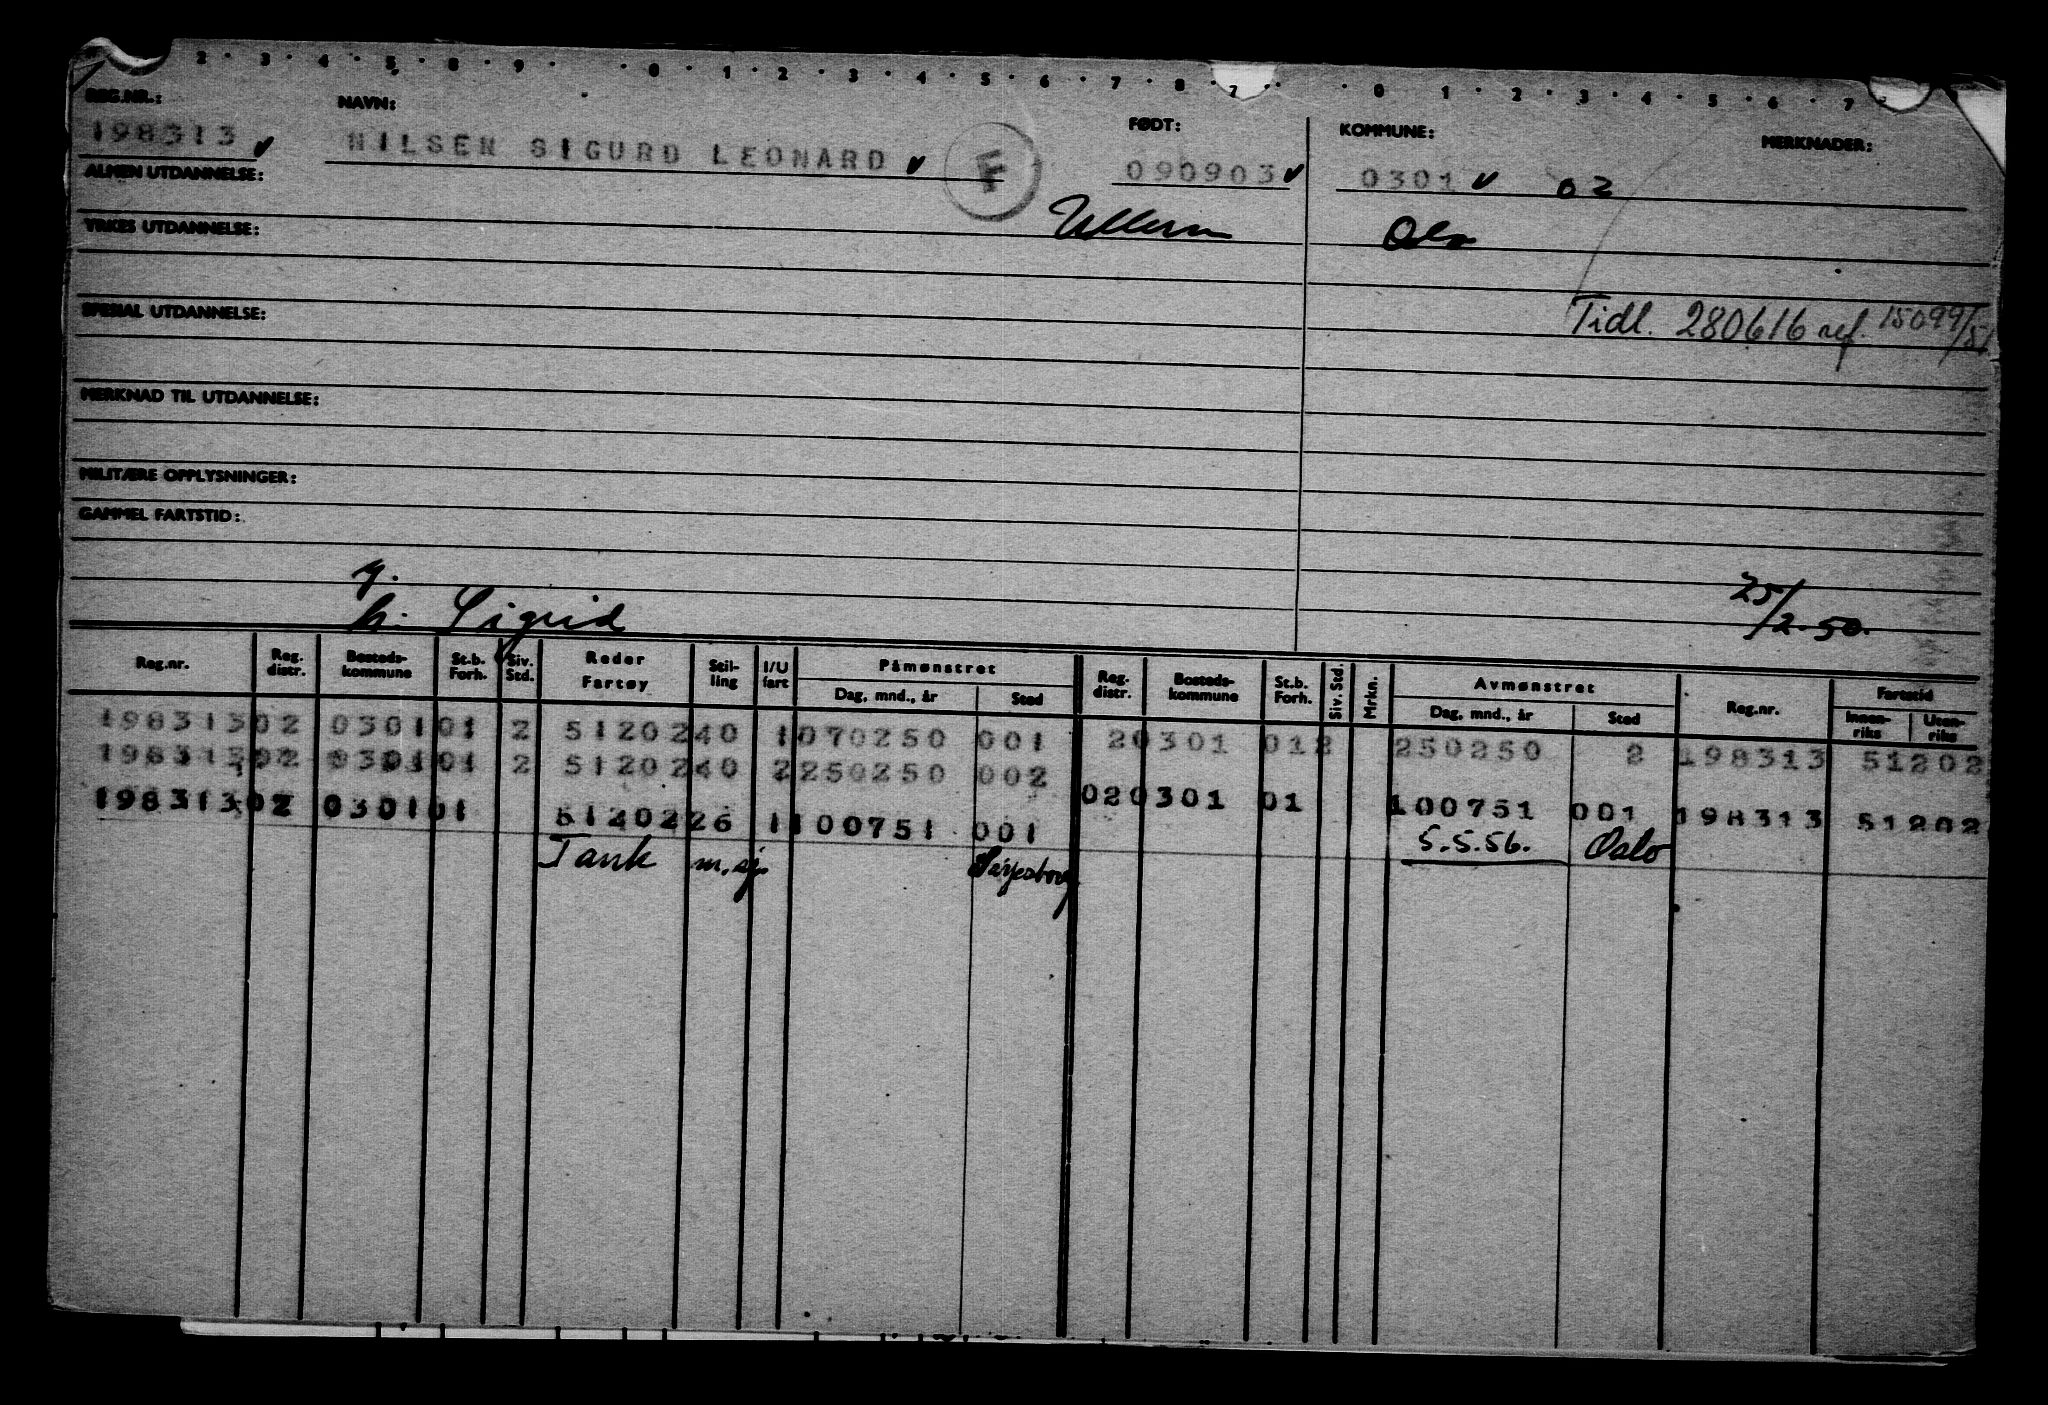 2 · 3 · 4 · 5 · 8 · 9 · · 0 · 1 · 2 · 3 · 4 · 5 · 6 · 7 · 8 · 7 · · 0 · 1 · 2 · 3 · 4 · 5 · 6 · 7
REG.NR.: NAVN: FØDT: KOMMUNE: MERKNADER:
198313 ✓ NILSEN SIGURD LEONARD ✓ F 090903 ✓ 0301 ✓ 02
ALMEN UTDANNELSE:
Ullern Oslo
YRKES UTDANNELSE:
SPESIAL UTDANNELSE:
Tidl. 280616 ref. 15099/51
MERKNAD TIL UTDANNELSE:
MILITÆRE OPPLYSNINGER:
GAMMEL FARTSTID:
g.
h. Sigrid 25/2-50.
Reg.nr. Reg. distr. Bosteds-kommune St.b. Forh. Siv. Std. Reder Fartøy Stil-ling I/U fart Påmønstret Dag, mnd., år Sted Reg. distr. Bosteds-kommune St.b. Forh. Siv. Std. Mrkn. Avmønstret Dag, mnd., år Sted Reg.nr. Fartstid Innen-riks Uten-riks
198313 02 0301 01 2 51202 40 1 070250 001 2 0301 01 2 250250 2 198313 51202
198313 02 0301 01 2 51202 40 2 250250 002
198313 02 0301 01 51202 26 1 100751 001 02 0301 01 100751 001 198313 51202
Tank m.sj. Sarpsborg 5.5.56. Oslo